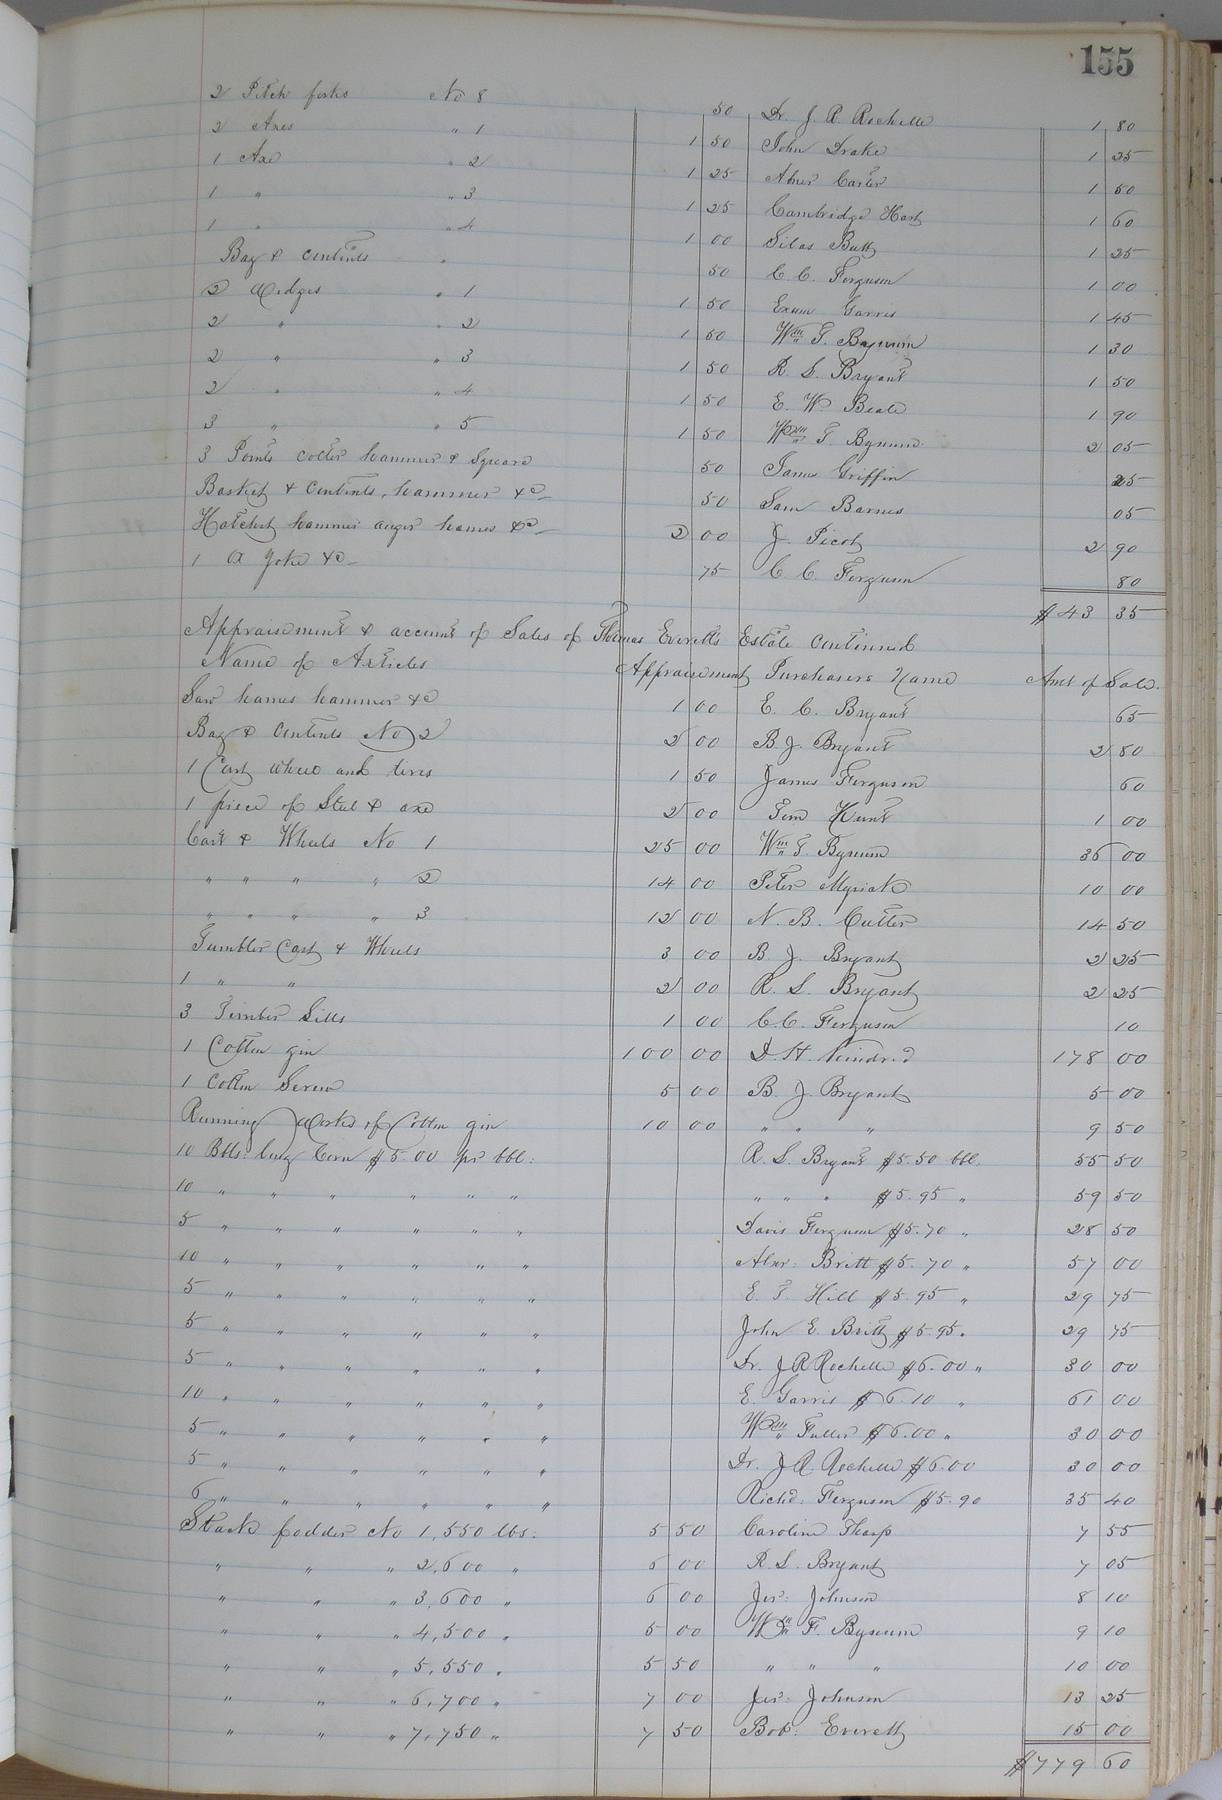 155
2 Pitch forks No 8 50 Dr. J. R. Rochelle 1 80
2 Axes " 1 1 50 John Drake 1 25
1 Axe " 2 1 25 Abner Carter 1 50
1 " " 3 1 25 Cambridge Hart 1 60
1 " " 4 1 00 Silas Butt 1 25
Bag & contents " 50 C. C. Ferguson 1 00
2 Wedges " 1 1 50 Exum Garris 1 45
2 " " 2 1 50 Wm T. Bynum 1 30
2 " " 3 1 50 R. S. Bryant 1 50
2 " " 4 1 50 E. W Beale 1 90
3 " " 5 1 50 Wm T. Bynum 2 05
3 Points colter hammer & Square 50 James Griffin 25
Basket & contents, hammer &c 50 Sam Barnes 05
Hatchet hammer auger hames &c 2 00 J. Picot 2 90
1 O Yoke &c 75 C. C. Ferguson 80
$43 35
Appraisement & account of Sales of Thomas Everett's Estate continued
Name of Articles Appraisement Purchasers Name Amt of Sale.
Saw hames hammer &c 1 00 E. C. Bryant 65
Bag & contents No 2 2 00 B J. Bryant 2 80
1 Cart wheel and tires 1 50 James Ferguson 60
1 piece of Steel & axe 2 00 Tom Hunt 1 00
Cart & Wheels No 1 25 00 Wm T. Bynum 36 00
" " " " 2 14 00 Peter 10 00
" " " " 3 12 00 N. B. Cutler 14 50
Tumbler Cart & Wheels 3 00 B. J. Bryant 2 25
1 " " 2 00 R. S. Bryant 2 25
3 Timber Sills 1 00 C. C. Ferguson 10
1 Cotton gin 100 00 D. H. 178 00
1 Cotton Screw 5 00 B. J. Bryant 5 00
Running Works of Cotton gin 10 00 " " " 9 50
10 Bbls: lug Corn $5.00 pr bbl: R. S. Bryant $5.50 bbl. 55 50
10 " " " " " " " " " $5.95 " 59 50
5 " " " " " " Davis Ferguson $5.70 " 28 50
10 " " " " " " Alxr. Britt $5.70 " 57 00
5 " " " " " " E. T. Hill $5.95 " 29 75
5 " " " " " " John E. Britt $5.95 " 29 75
5 " " " " " " Dr. J R Rochelle $6.00 " 30 00
10 " " " " " " E. Garris $6.10 " 61 00
5 " " " " " " Wm Fuller $6.00 " 30 00
5 " " " " " " Dr. J. R. Rochelle $6.00 30 00
6 " " " " " " Richd: Ferguson $5.90 35 40
Stack fodder No 1, 550 lbs: 5 50 Caroline Tharp 7 55
" " " 2, 600 " 6 00 R. S. Bryant 7 05
" " " 3, 600 " 6 00 Jes: Johnson 8 10
" " " 4, 500 " 5 00 Wm F. Bynum 9 10
" " " 5, 550 " 5 50 " " " 10 00
" " " 6, 700 " 7 00 Jes: Johnson 13 25
" " " 7, 750 " 7 50 Bob: Everett 15 00
$779 60